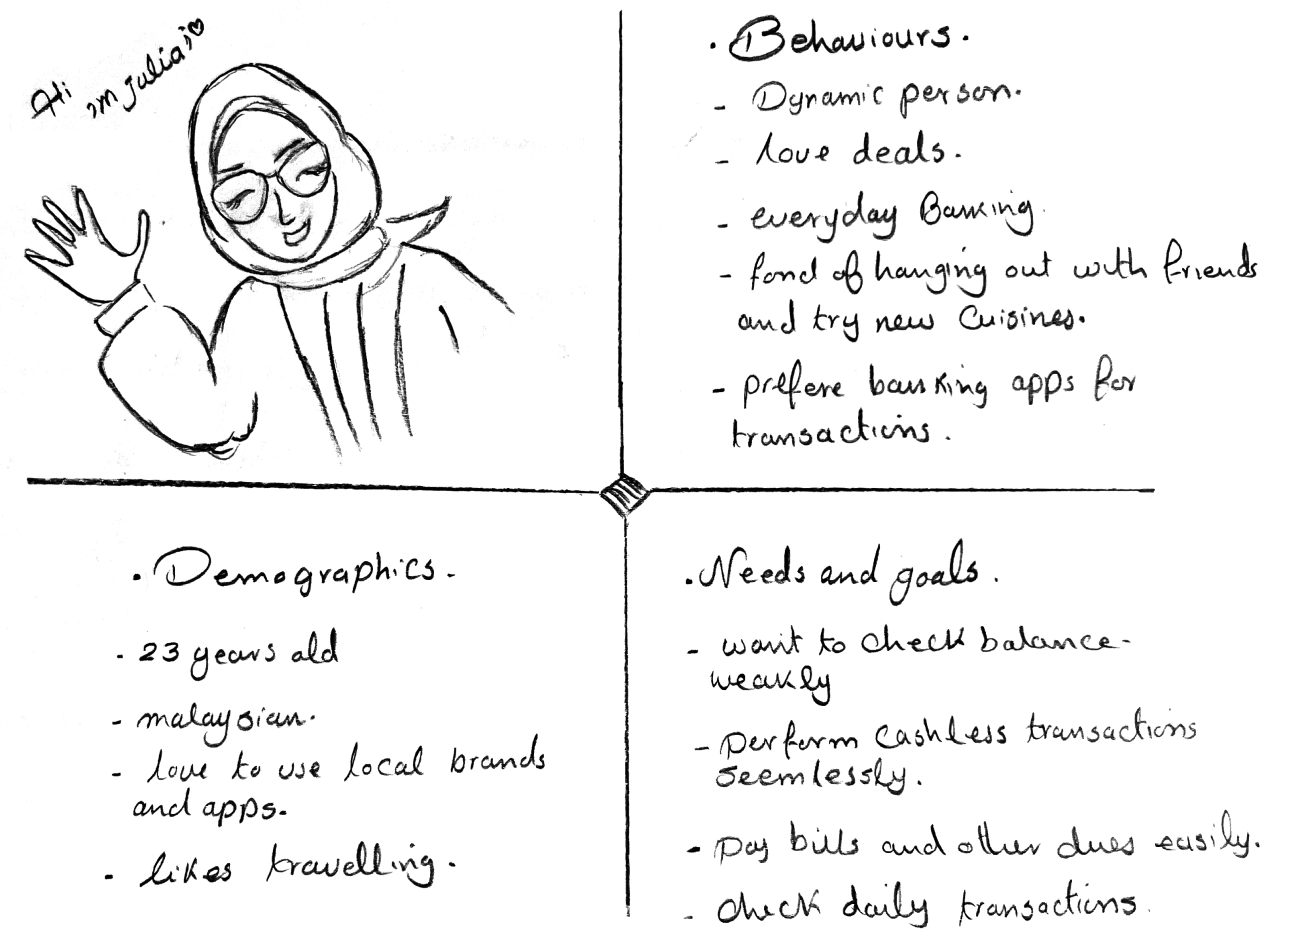 Hi
im Julia;♡
• Behaviours.
- Dynamic person.
- love deals.
- everyday Banking.
- fond of hanging out with friends
and try new Cuisines.
- prefere banking apps for
transactions.
• Demographics.
- 23 years old
- malaysian.
- love to use local brands
and apps.
- likes travelling.
• Needs and goals.
- want to check balance-
weakly
- perform cashless transactions
seemlessly.
- pay bills and other dues easily.
- check daily transactions.